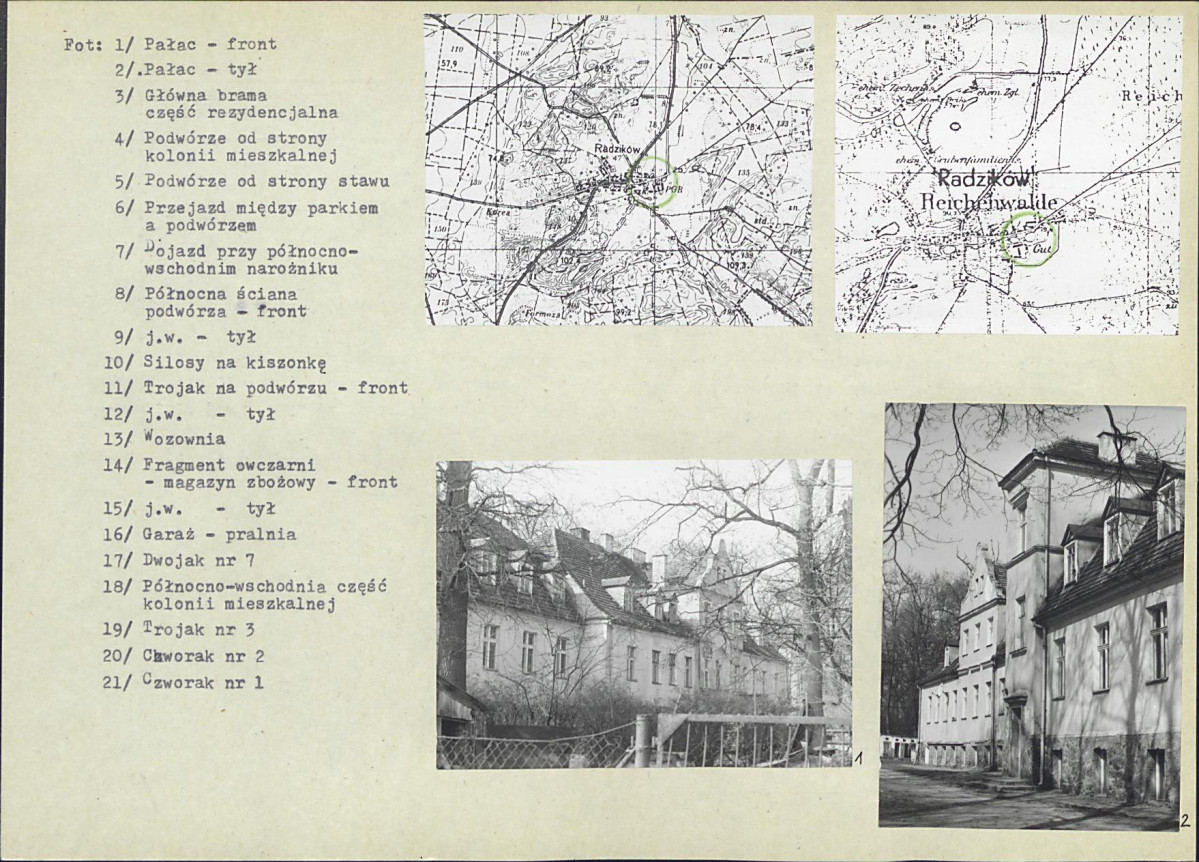 Fot: 1/ Pałac - front
2/.Pałac - tył
3/ Główna brama
część rezydencjalna
4/ Podwórze od strony
kolonii mieszkalnej
5/ Podwórze od strony stawu
6/ Przejazd między parkiem
a podwórzem
7/ Dojazd przy północno-
wschodnim narożniku
8/ Północna ściana
podwórza - front
9/ j.w. - tył
10/ Silosy na kiszonkę
11/ Trojak na podwórzu - front
12/ j.w. - tył
13/ Wozownia
14/ Fragment owczarni
- magazyn zbożowy - front
15/ j.w. - tył
16/ Garaż - pralnia
17/ Dwojak nr 7
18/ Północno-wschodnia część
kolonii mieszkalnej
19/ Trojak nr 3
20/ Czworak nr 2
21/ Czworak nr 1
110
57,9
Radzików
PGR
Formoza
Reich
chem. Zgl.
Radzików
Reichenwalde
Gut
1
2